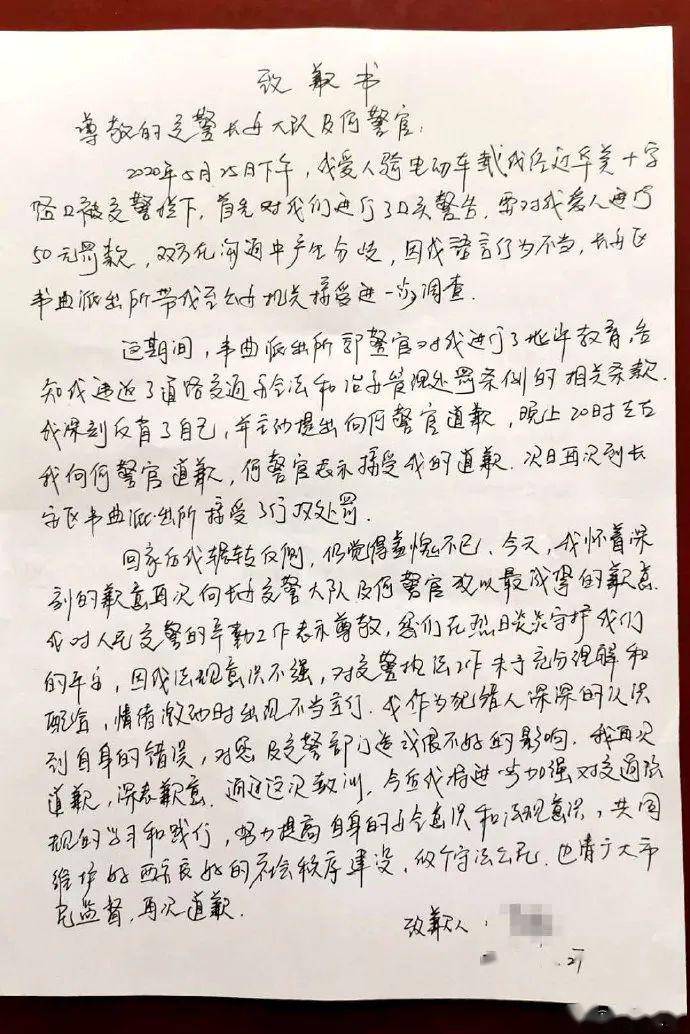 致歉书
尊敬的交警长安大队及何警官:
2020年5月25日下午，我爱人骑电动车载我经过华美十字
路口被交警拦下，首先对我们进行了口头警告，要对我爱人进行
50元罚款，双方在沟通中产生分歧，因我语言行为不当，长安区
韦曲派出所带我至公安机关接受进一步调查.
这期间，韦曲派出所郭警官对我进行了批评教育，告
知我违反了道路交通安全法和治安管理处罚条例的相关条款.
我深刻反省了自己，并主动提出向何警官道歉，晚上20时左右
我向何警官道歉，何警官表示接受我的道歉.次日再次到长
安区韦曲派出所接受了行政处罚.
回家后我辗转反侧，仍觉得羞愧不已.今天，我怀着深
刻的歉意再次向长安交警大队及何警官致以最诚挚的歉意.
我对人民交警的辛勤工作表示尊敬，您们在烈日炎炎守护我们
的平安，因我法规意识不强，对交警执法工作未予充分理解和
配合，情绪激动时出现不当言行.我作为犯错人深深的认识
到自身的错误，对您及交警部门造成很不好的影响.我再次
道歉，深表歉意.通过这次教训，今后我将进一步加强对交通法
规的学习和践行，努力提高自身的安全意识和法规意识，共同
维护好西安良好的社会秩序建设，做个守法公民.也请广大市
民监督，再次道歉.
致歉人:
27